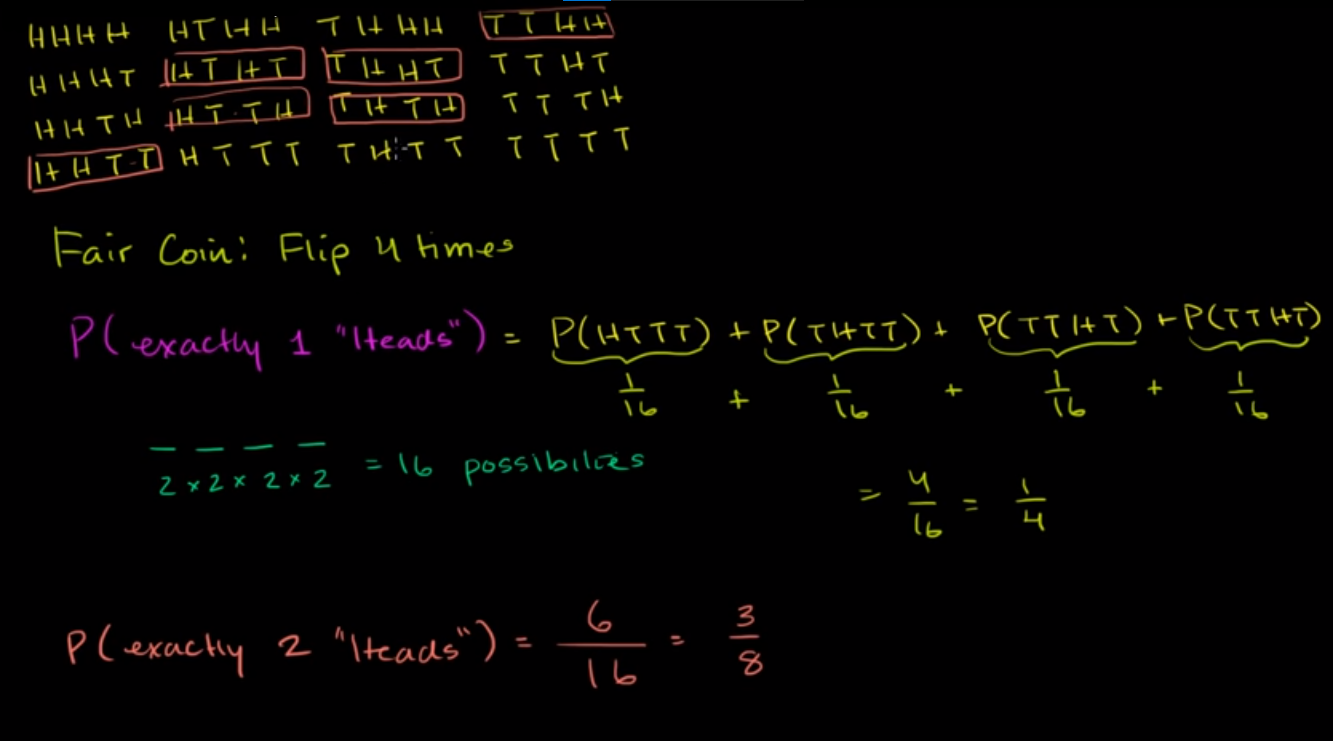 HHHH HTHH THHH TTHH
HHHT HTHT THHT TTHT
HHTH HTTH THTH TTTH
HHTT HTTT THTT TTTT
Fair Coin: Flip 4 times
P(exactly 1 "Heads") = P(HTTT) + P(THTT) + P(TTHT) + P(TTHT)
1/16 + 1/16 + 1/16 + 1/16
2 × 2 × 2 × 2 = 16 possibilies
= 4/16 = 1/4
P(exactly 2 "Heads") = 6/16 = 3/8